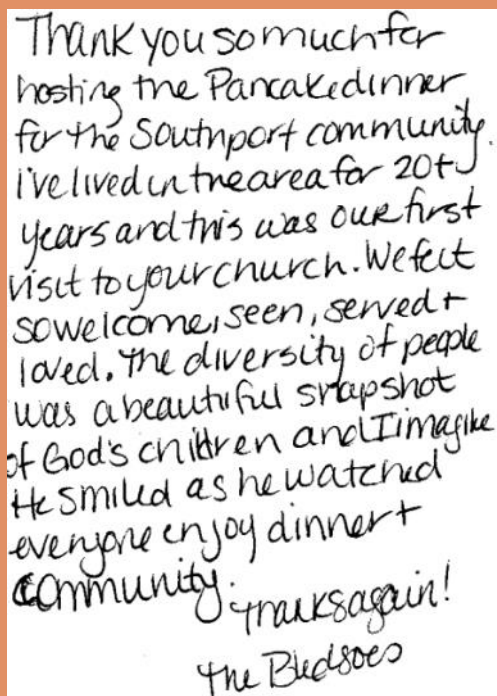 Thank you so much for
hosting the Pancake dinner
for the Southport community.
I've lived in the area for 20+
years and this was our first
visit to your church. We felt
so welcome, seen, served +
loved. The diversity of people
was a beautiful snapshot
of God's children and I imagine
He smiled as he watched
everyone enjoy dinner +
community.
Thanks again!
The Bledsoes